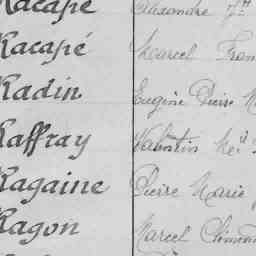 Racapé Alexandre
Racapé Marcel Fran
Radin Eugène Pierre
Raffray Valentin
Ragaine Pierre Marie
Ragon Marcel